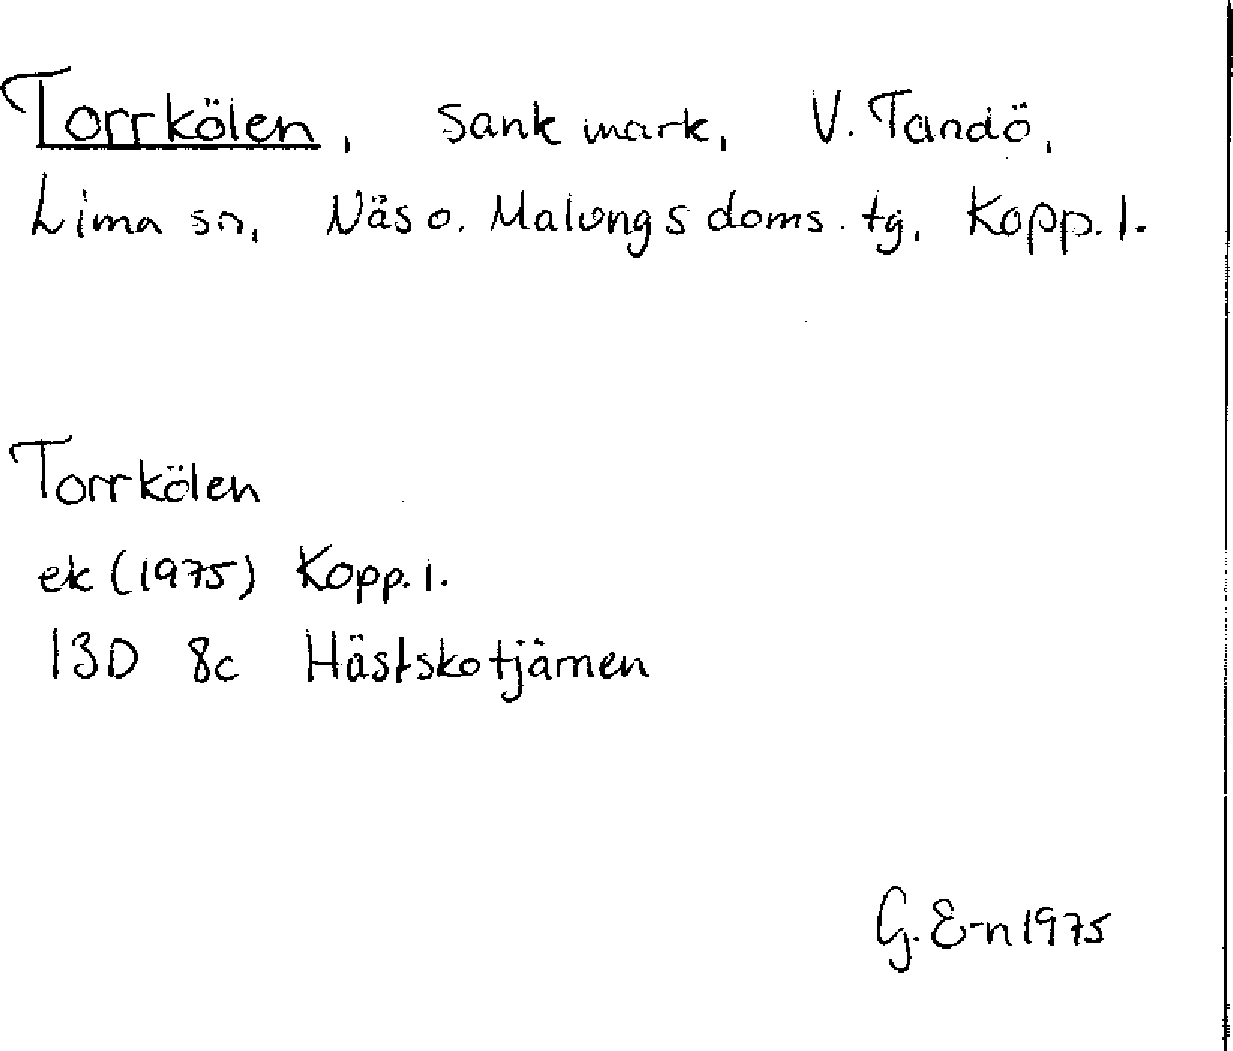 Torrkölen, Sank mark, V. Tandö,
Lima sn, Näs o. Malungs doms. tg, Kopp. l.
Torrkölen
ek (1975) Kopp. l.
13D 8c Hästskotjärnen
G. E-n 1975